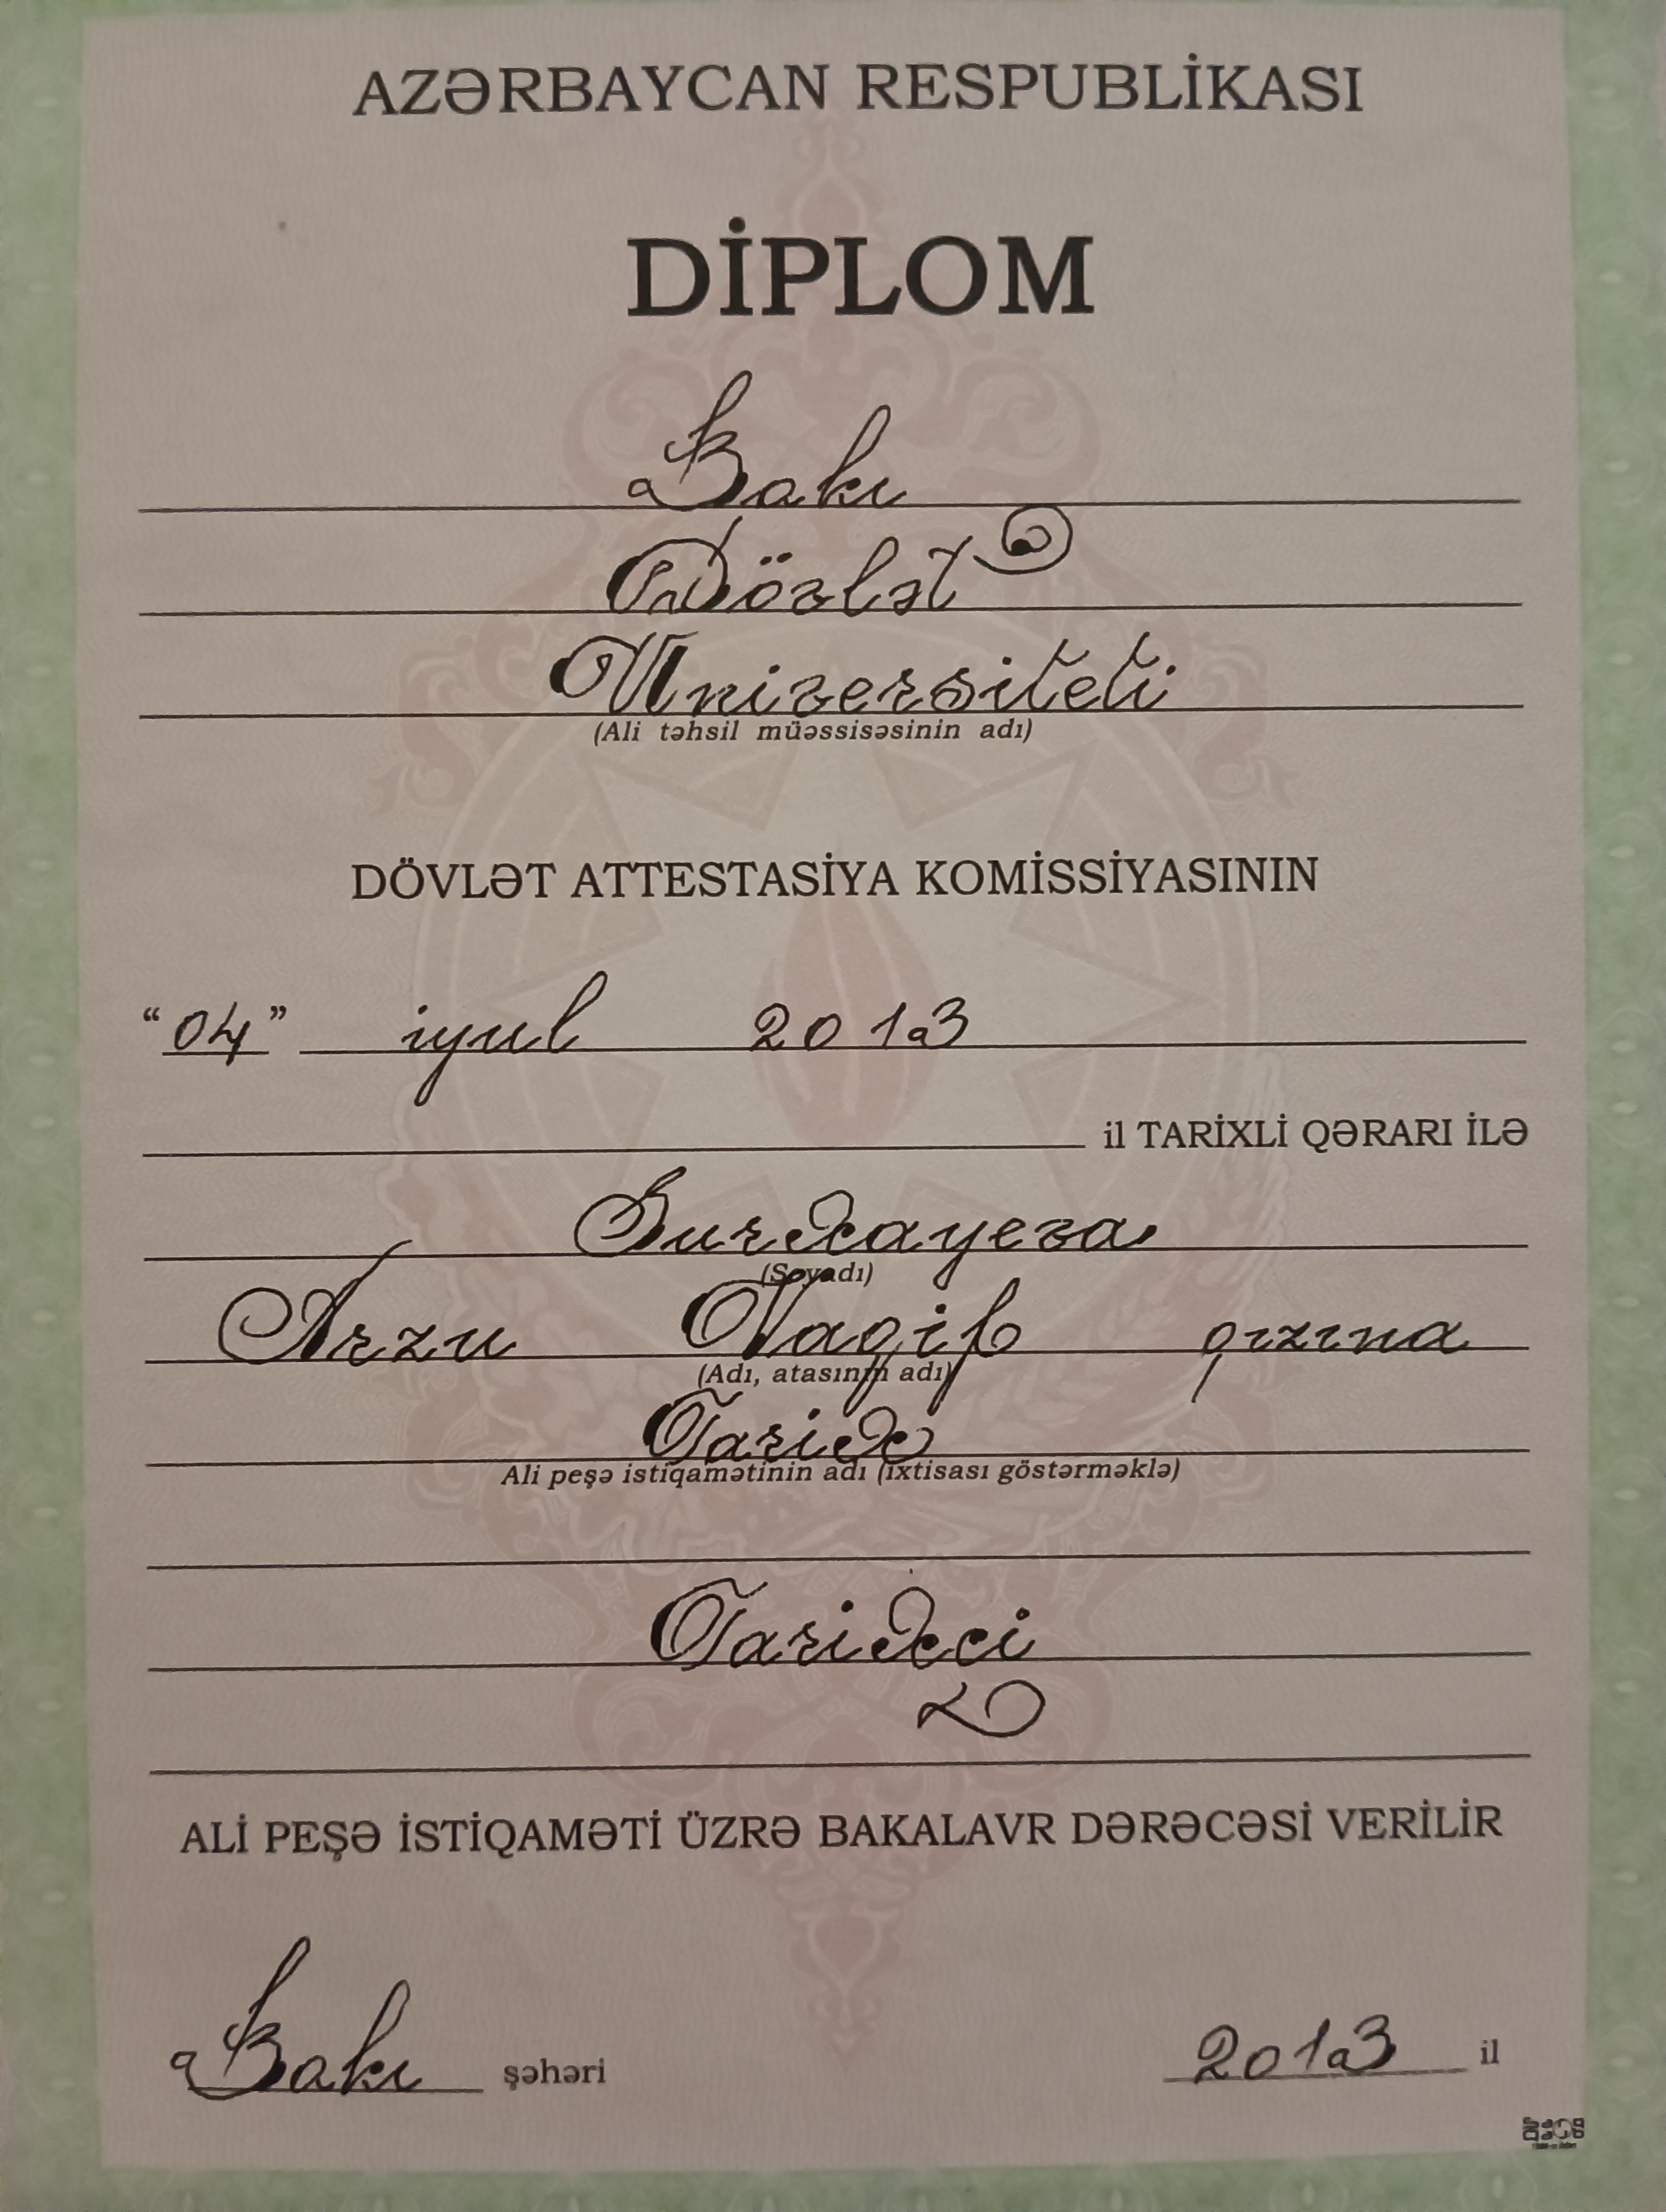 AZƏRBAYCAN RESPUBLİKASI
DİPLOM
Bakı
Dövlət
Universiteti
(Ali təhsil müəssisəsinin adı)
DÖVLƏT ATTESTASİYA KOMİSSİYASININ
“04” iyul 2013
il TARİXLİ QƏRARI İLƏ
Surxayeva
(Soyadı)
Arzu Vaqif qızına
(Adı, atasının adı)
Tarix
Ali peşə istiqamətinin adı (ixtisası göstərməklə)
Tarixçi
ALİ PEŞƏ İSTİQAMƏTİ ÜZRƏ BAKALAVR DƏRƏCƏSİ VERİLİR
Bakı şəhəri 2013 il